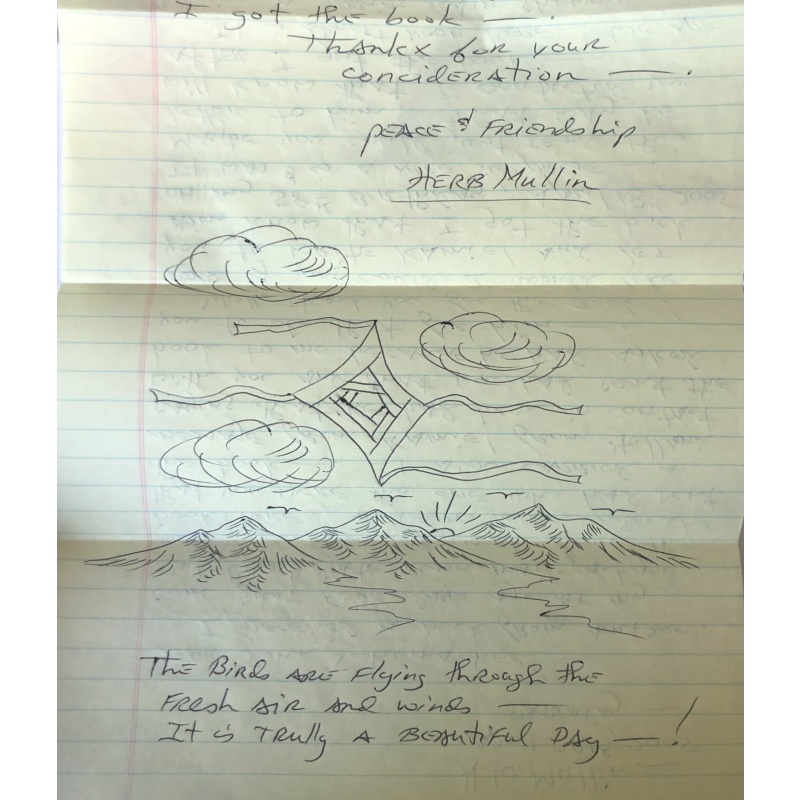 I got the book —.
Thankx for your
concideration —.
PEACE & Friendship
HERB Mullin
The Birds are Flying through the
Fresh Air and winds —
It is Trully A BEAUTIFUL DAY — !